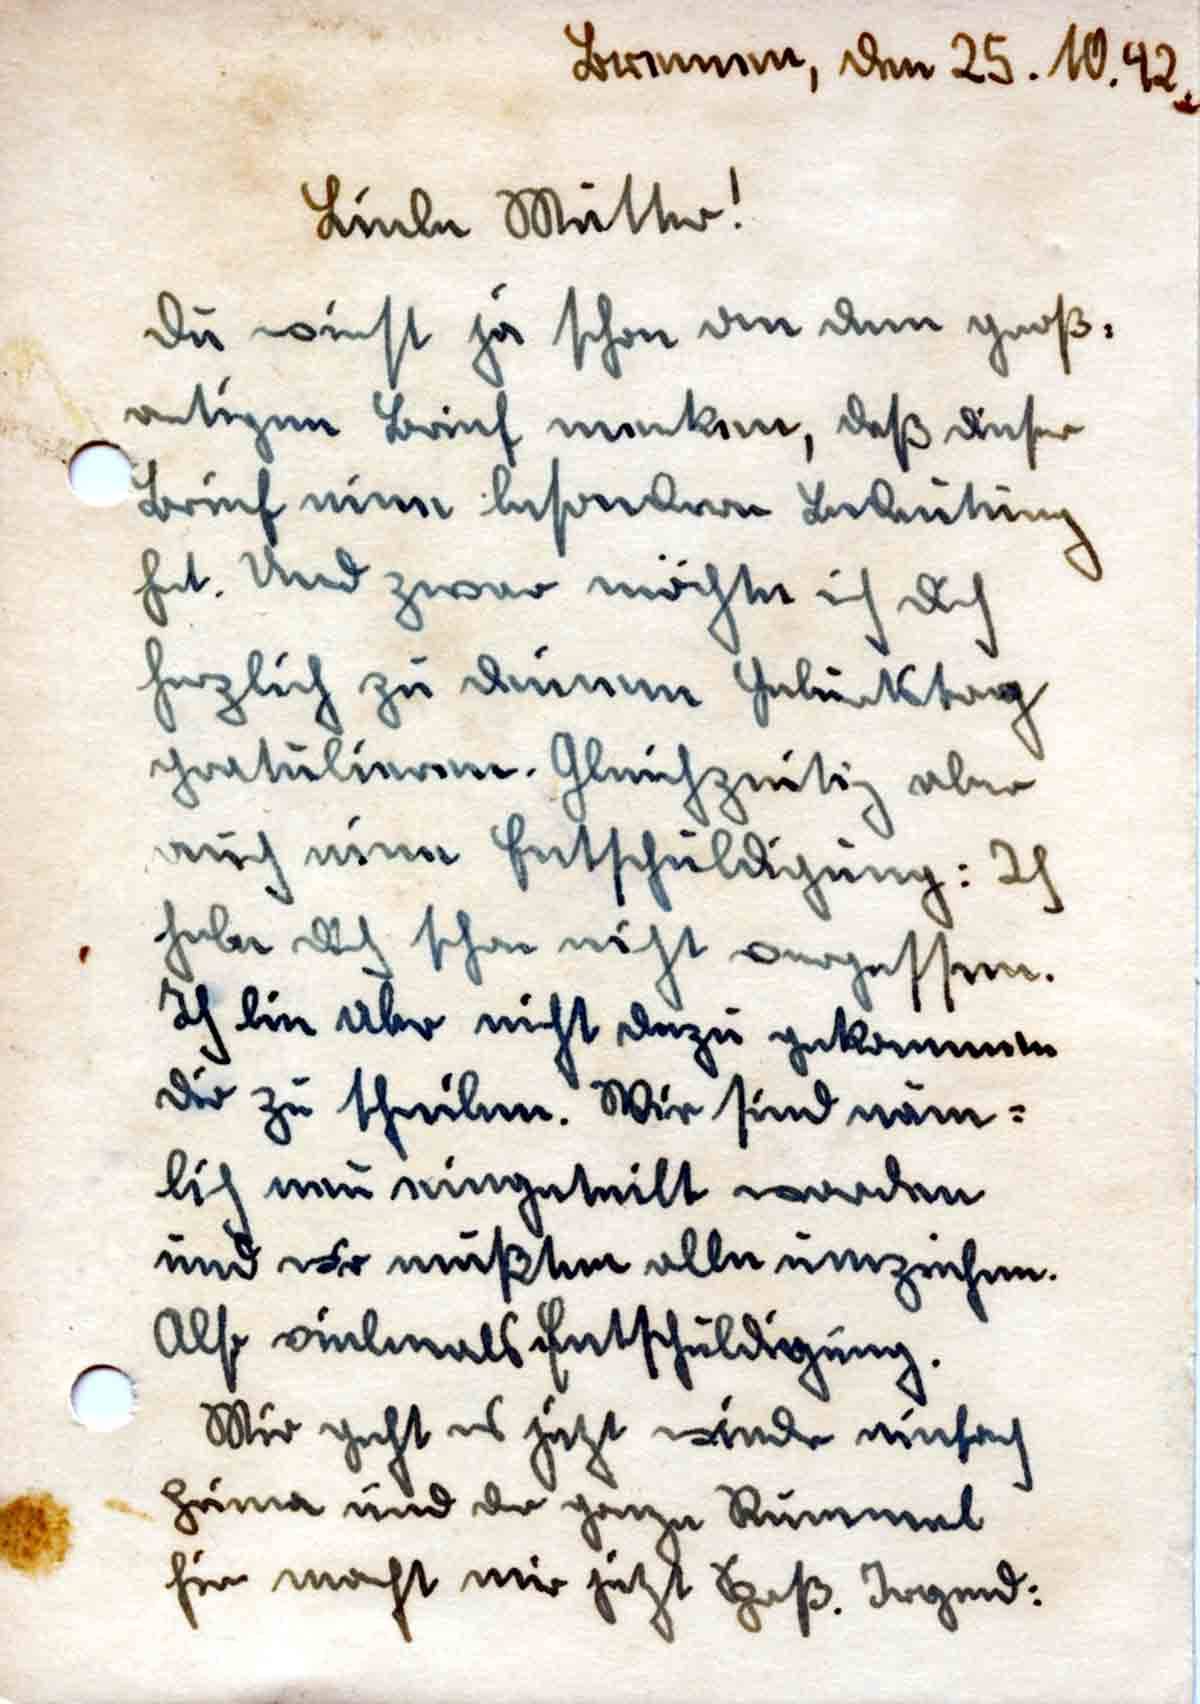 Bremen, den 25.10.42.
Liebe Mutter!
Du wirst ja schon an dem groß=
artigen Brief merken, daß dieser
Brief eine besondere Bedeutung
hat. Und zwar möchte ich Dich
herzlich zu deinem Geburtstag
gratulieren. Gleichzeitig aber
auch eine Entschuldigung: Ich
habe Dich schon nicht vergessen.
Ich bin aber nicht dazu gekommen
dir zu schreiben. Wir sind näm=
lich neu eingeteilt worden
und wir mußten alle umziehen.
Also vielmals Entschuldigung.
Mir geht es jetzt wieder einfach
prima und der ganze Rummel
hier macht mir jetzt Spaß. Irgend=